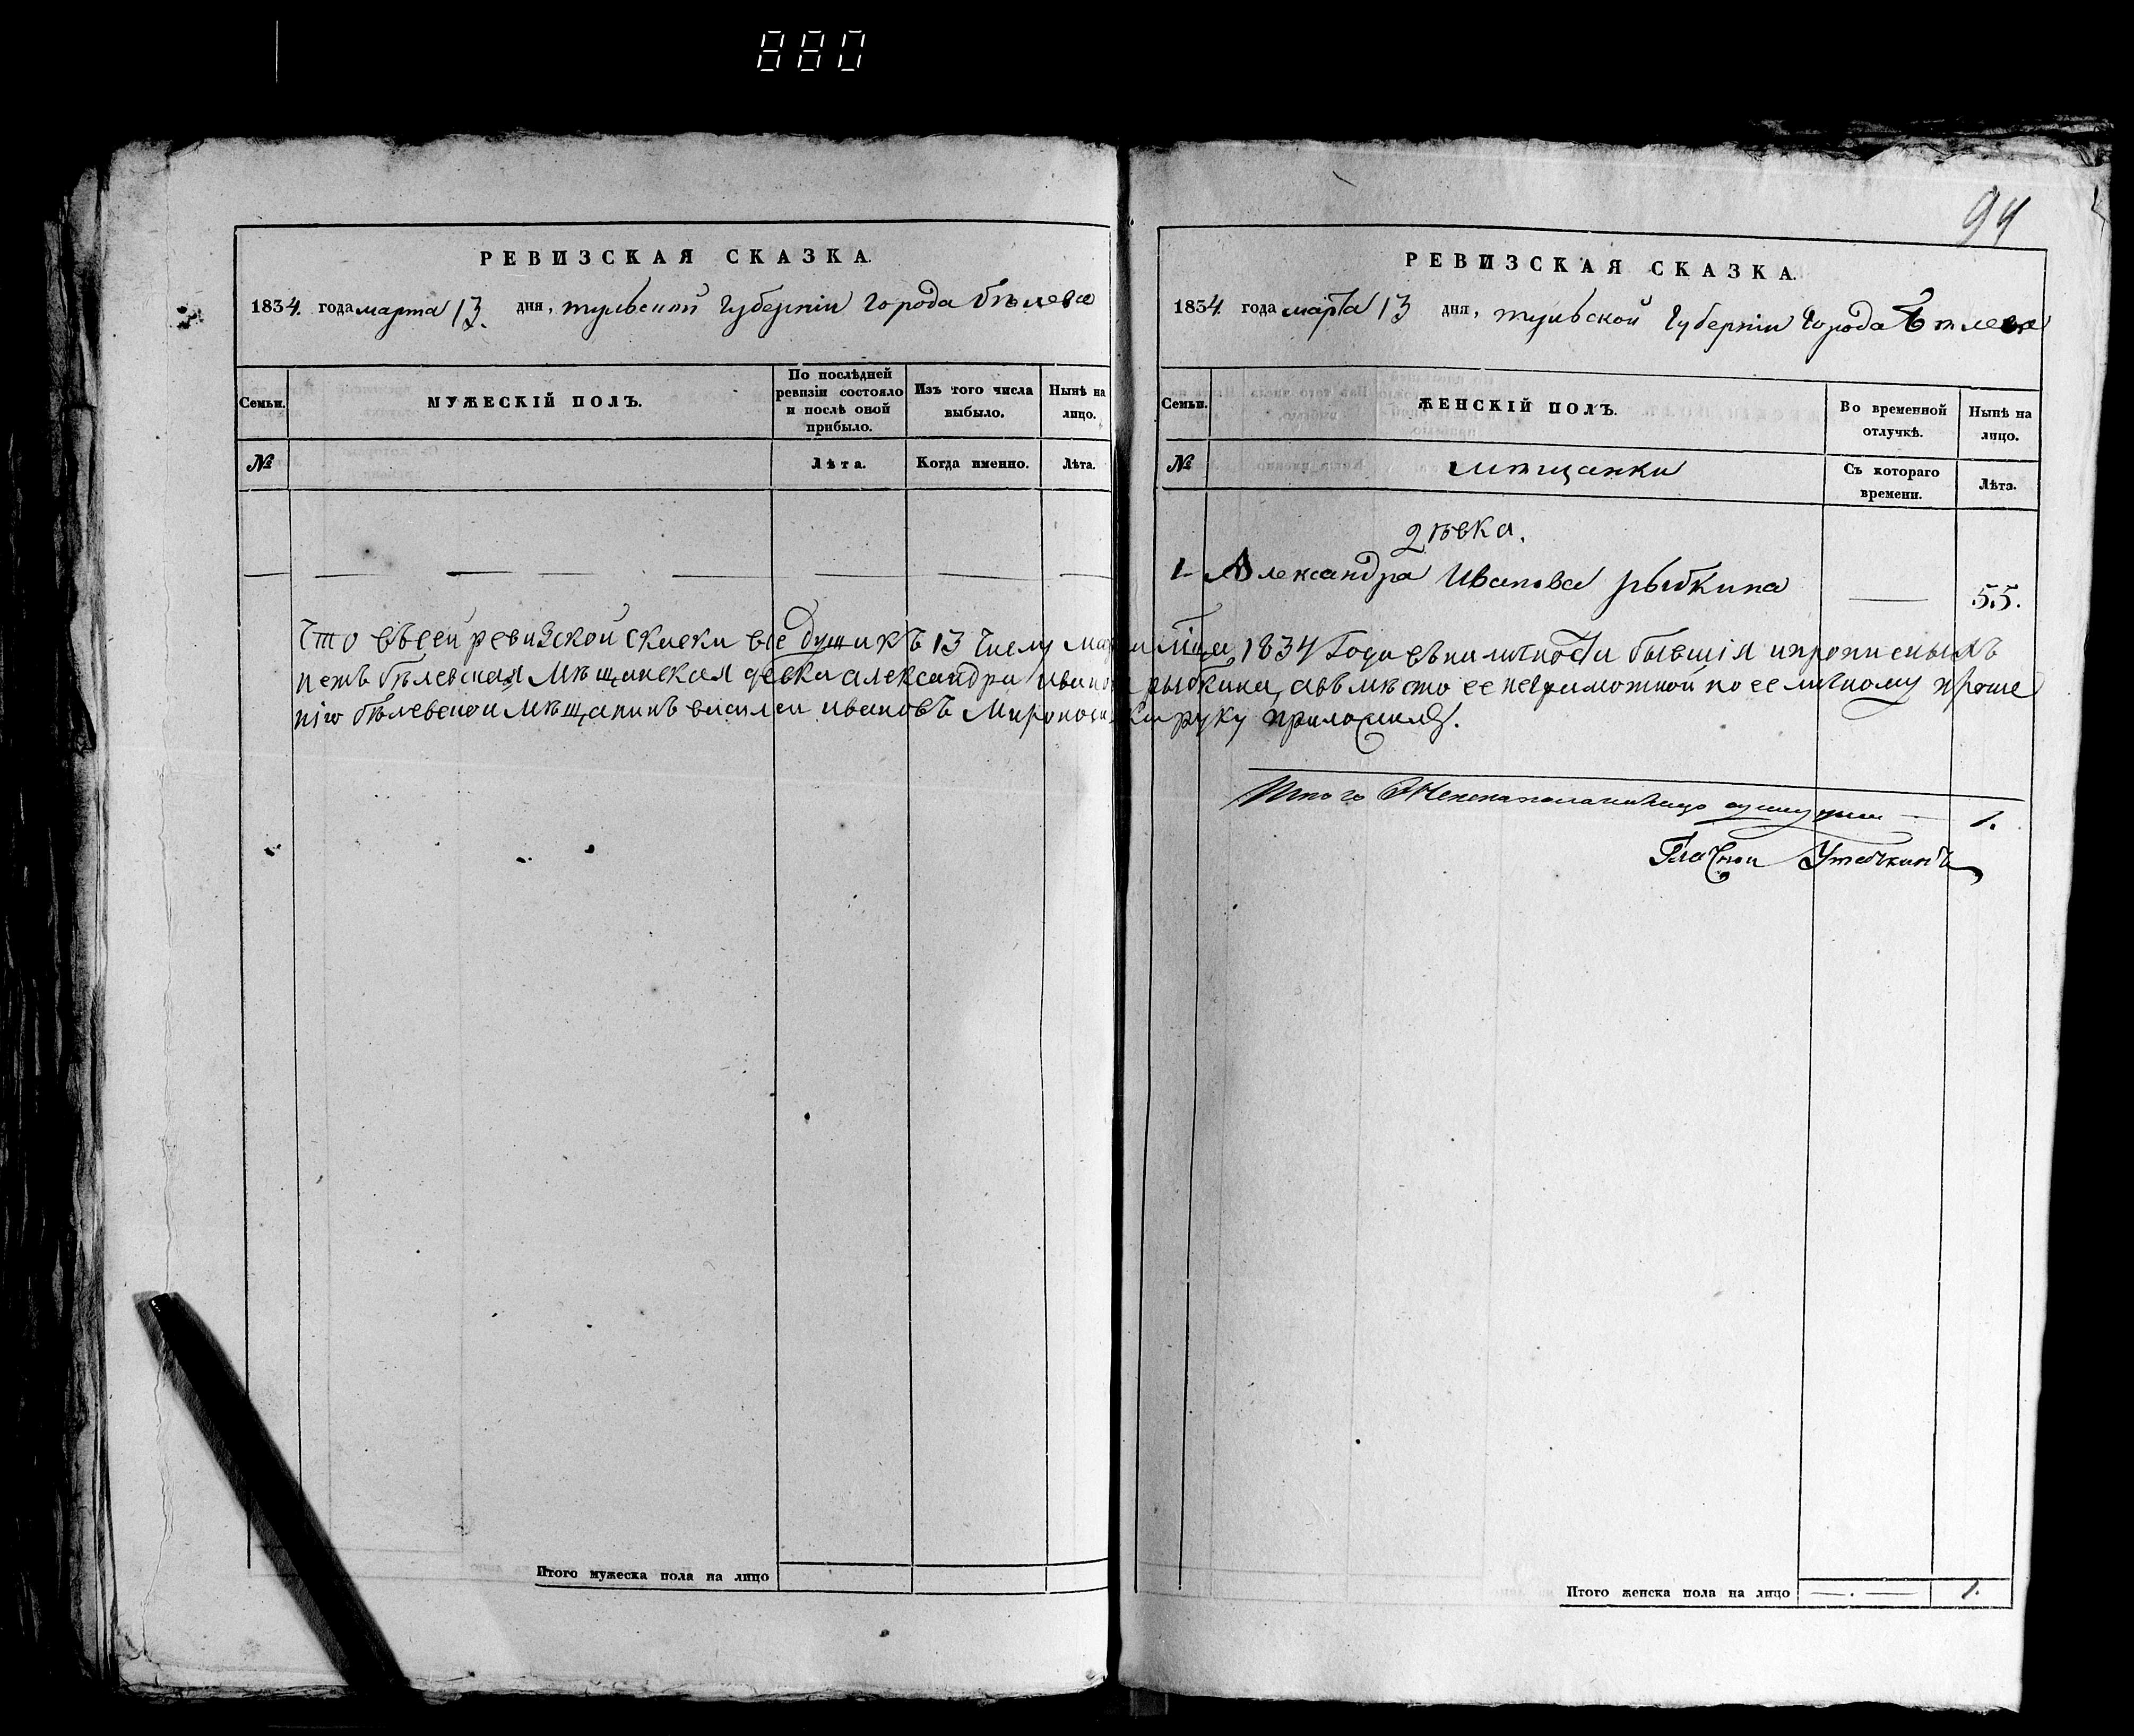 880
94
РЕВИЗСКАЯ СКАЗКА.
1834. года марта 13. дня, тульской губерніи города бѣлева
Семьи.
МУЖЕСКІЙ ПОЛЪ.
По послѣдней ревизіи состояло и послѣ оной прибыло.
Изъ того числа выбыло.
Нынѣ на лицо.
№
Лѣта.
Когда именно.
Лѣта.
РЕВИЗСКАЯ СКАЗКА.
1834. года марта 13 дня, тульской губерніи города Бѣлева
Семьи.
ЖЕНСКІЙ ПОЛЪ.
Во временной отлучкѣ.
Нынѣ на лицо.
№
мѣщанки
Съ котораго времени.
Лѣта.
дѣвка.
1 Александра Иванова рыбкина 55.
что въ сей ревизской скаски все души к 13 числу марта мца 1834 Года въ наличности бывшія
бѣлевская мѣщанская девка александра иванова рыбкина, а вѣмѣсто ее неграмотной по ее личному проше
нію бѣлевской мѣщанинъ василеи ивановъ руку приложилъ.
Итого женска пола налицо одну душу 1.
Гласной Уточкинъ
Итого мужеска пола на лицо
Итого женска пола на лицо 1.